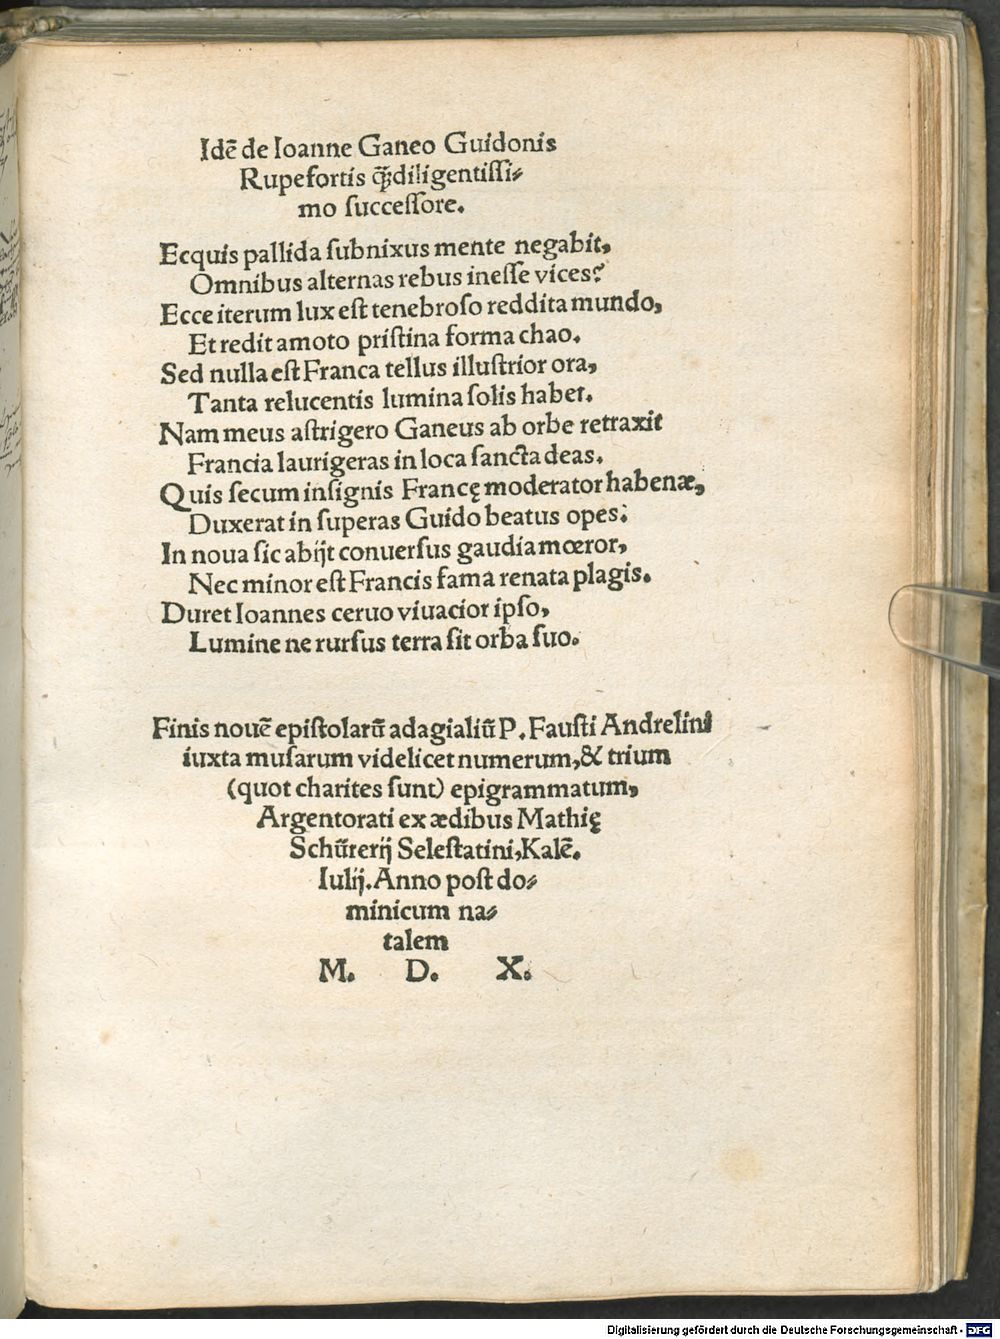 Idē de Ioanne Ganeo Guidonis
Rupefortis q̄ꝫdiligentiſſi⸗
mo ſucceſſore.
Ecquis pallida ſubnixus mente negabit,
Omnibus alternas rebus ineſſe vices?
Ecce iterum lux eſt tenebroſo reddita mundo,
Et redit amoto priſtina forma chao.
Sed nulla eſt Franca tellus illuſtrior ora,
Tanta relucentis lumina ſolis habet.
Nam meus aſtrigero Ganeus ab orbe retraxit
Francia laurigeras in loca ſancta deas.
Quis ſecum inſignis Francę moderator habenæ,
Duxerat in ſuperas Guido beatus opes?
In noua ſic abijt conuerſus gaudia mœror,
Nec minor eſt Francis fama renata plagis.
Duret Ioannes ceruo viuacior ipſo,
Lumine ne rurſus terra ſit orba ſuo.
Finis nouē epiſtolarū adagialiū P. Fauſti Andrelini
iuxta muſarum videlicet numerum, & trium
(quot charites ſunt) epigrammatum,
Argentorati ex ædibus Mathię
Schürerij Seleſtatini, Kalē.
Iulij. Anno poſt do⸗
minicum na⸗
talem
M. D. X.
Digitalisierung gefördert durch die Deutsche Forschungsgemeinschaft - DFG